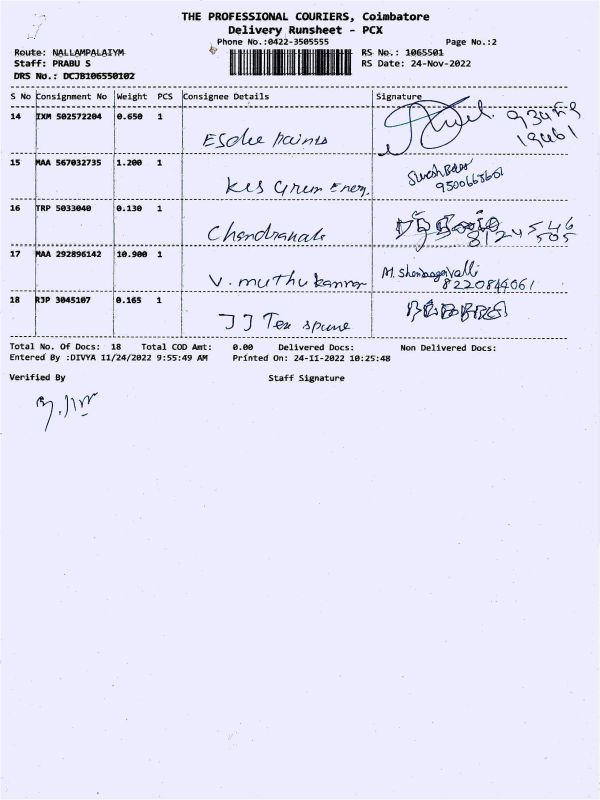 THE PROFESSIONAL COURIERS, Coimbatore
Delivery Runsheet - PCX
Phone No.:0422-3505555 Page No.:2
Route: NALLAMPALAIYM RS No.: 1065501
Staff: PRABU S RS Date: 24-Nov-2022
DRS No.: DCJB106550102
S No Consignment No Weight PCS Consignee Details Signature
14 IXM 502572204 0.650 1
Esdee paints
15 MAA 567032735 1.200 1
9500665601
16 TRP 5033040 0.130 1
Chandrakala
17 MAA 292896142 10.900 1 M. Shenbagavalli
V. muthu kannan 8220844061
18 RJP 3045107 0.165 1
JJ Tex
Total No. Of Docs: 18 Total COD Amt: 0.00 Delivered Docs: Non Delivered Docs:
Entered By :DIVYA 11/24/2022 9:55:49 AM Printed On: 24-11-2022 10:25:48
Verified By Staff Signature